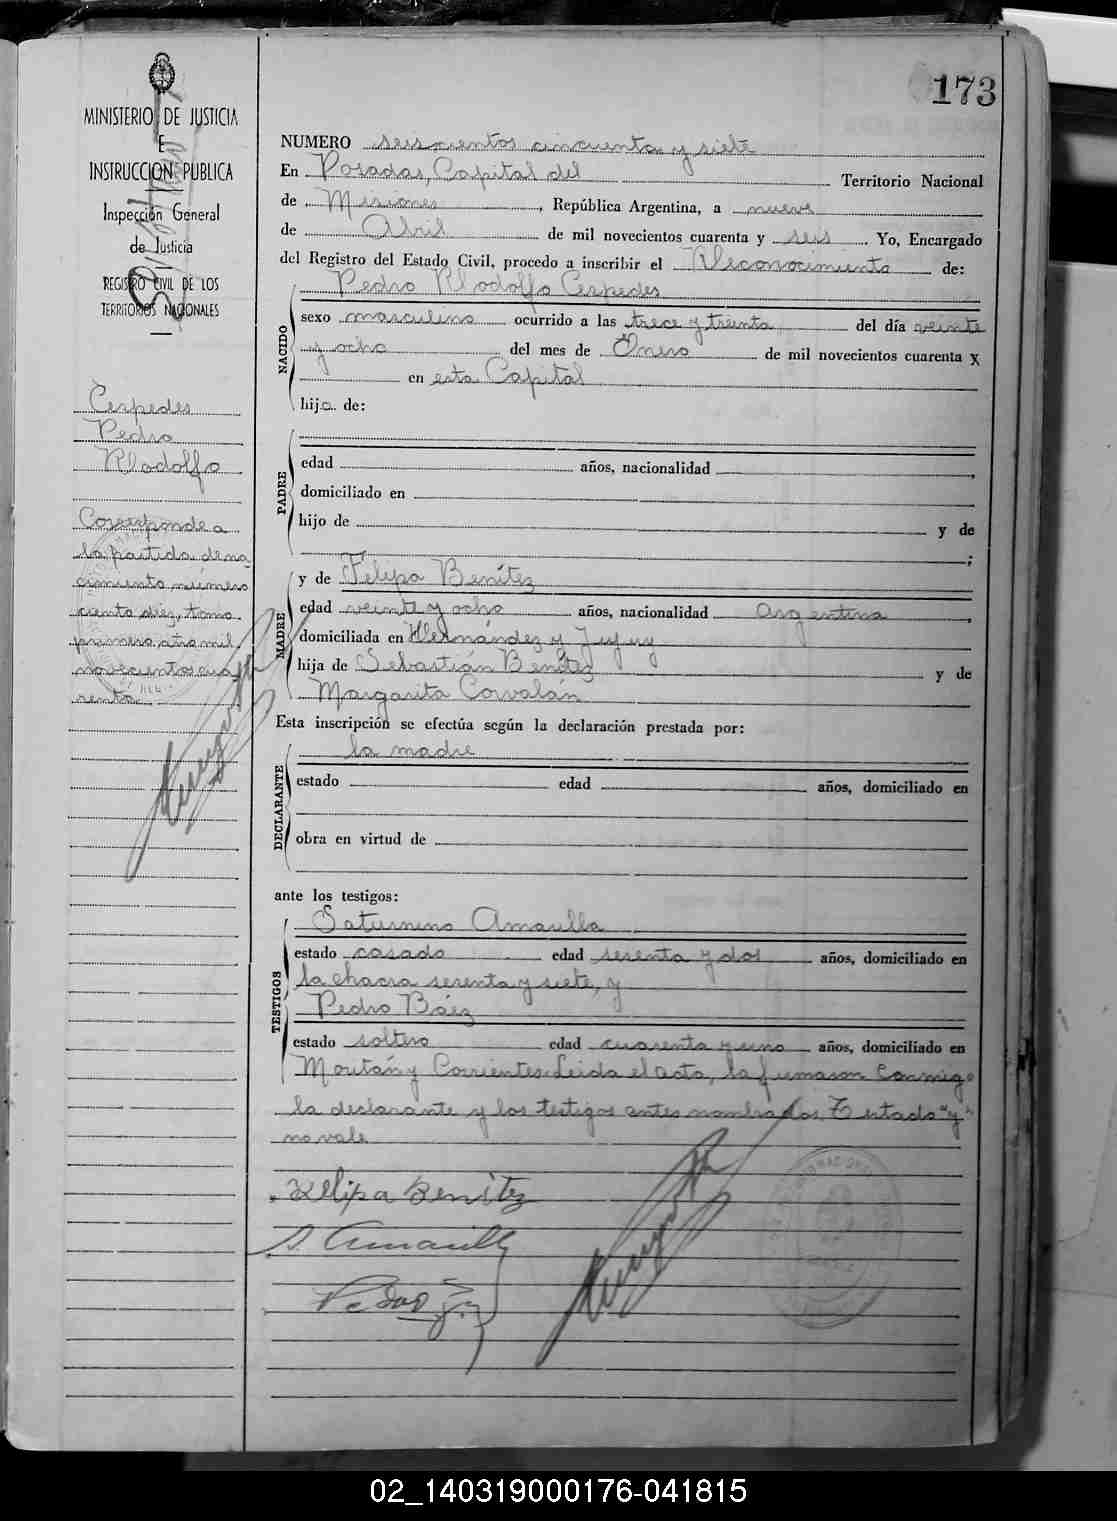 173
MINISTERIO DE JUSTICIA
E
INSTRUCCION PUBLICA
Inspección General
de Justicia
REGISTRO CIVIL DE LOS
TERRITORIOS NACIONALES
Cespedes
Pedro
Rhodolfo
Corresponde a
la partida de na
cimiento número
ciento diez, tomo
primero, año mil
novecientos cua
renta
NUMERO seiscientos cincuenta y siete
En Posadas, Capital del Territorio Nacional
de Misiones, República Argentina, a nueve
de Abril de mil novecientos cuarenta y seis Yo, Encargado
del Registro del Estado Civil, procedo a inscribir el Reconocimiento de:
Pedro Rhodolfo Cespedes
NACIDO
sexo masculino ocurrido a las trece y treinta del día veinte
y ocho del mes de Enero de mil novecientos cuarenta x
en esta Capital
hijo de:
PADRE
edad años, nacionalidad
domiciliado en
hijo de y de
;
MADRE
y de Felipa Benítez
edad veinte y ocho años, nacionalidad argentina
domiciliada en Hernández y Jujuy
hija de Sebastián Benítez y de
Margarita Corvalán
Esta inscripción se efectúa según la declaración prestada por:
la madre
DECLARANTE
estado edad años, domiciliado en
obra en virtud de
ante los testigos:
TESTIGOS
Saturnino Amarilla
estado casado edad sesenta y dos años, domiciliado en
la chacra sesenta y siete, y
Pedro Báez
estado soltero edad cuarenta y uno años, domiciliado en
y Corrientes. Leida el acta, la firmaron conmigo
la declarante y los testigos antes nombrados. Testado "y"
no vale
Felipa Benítez
S. Amarilla
Pedro
02_140319000176-041815